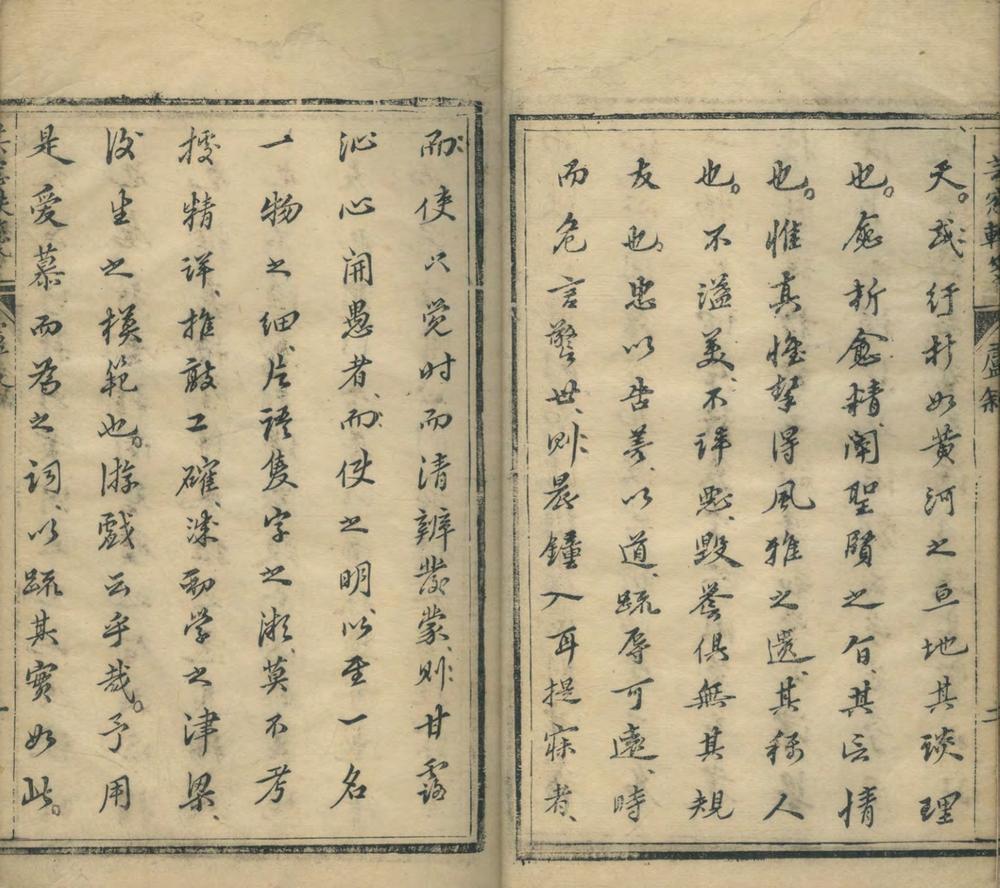 天。或紆朴如黃河之亘地其談理
也。愈析愈精、闡聖賢之旨、其言情
也。惟真惟摯得風雅之遺、其稱人
也。不溢美、不詳惡、毀譽俱無其規
友也、忠以告善、以道、疏辱可遠、時
而危言警世、則晨鐘入耳提寐者、
而使之覺时而清辨發蒙、則甘露
沁心開愚者、而使之明、以至一名
一物之細、片語隻字之微、莫不考
據精詳、推敲工確、洵初學之津梁、
後生之模範也。游戲云乎哉。予用
是爱慕而為之詞、以疏其實如此。